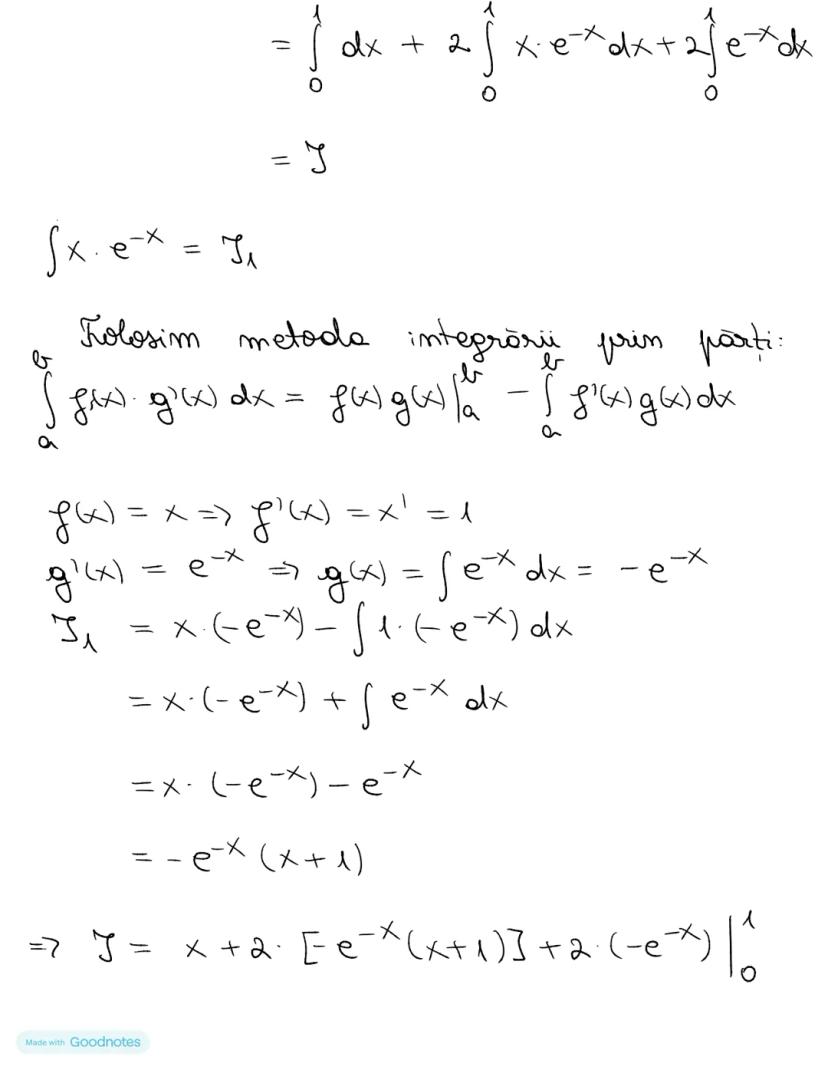 = ∫₀¹ dx + 2 ∫₀¹ x·e⁻ˣ dx + 2 ∫₀¹ e⁻ˣ dx
= J
∫ x·e⁻ˣ = J₁
Folosim metoda integrării prin părți:
∫ₐᵇ f(x)·g'(x) dx = f(x) g(x) |ₐᵇ - ∫ₐᵇ f'(x) g(x) dx
f(x) = x => f'(x) = x' = 1
g'(x) = e⁻ˣ => g(x) = ∫ e⁻ˣ dx = -e⁻ˣ
J₁ = x·(-e⁻ˣ) - ∫ 1·(-e⁻ˣ) dx
= x·(-e⁻ˣ) + ∫ e⁻ˣ dx
= x·(-e⁻ˣ) - e⁻ˣ
= -e⁻ˣ (x+1)
=> J = x + 2·[-e⁻ˣ(x+1)] + 2·(-e⁻ˣ) |₀¹
Made with Goodnotes